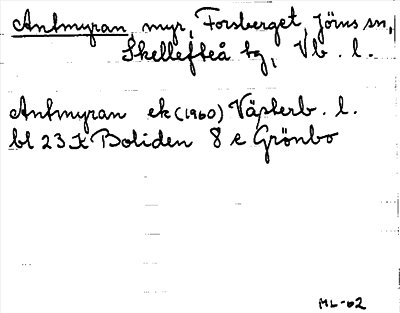 Antmyran myr, Forsberget, Jörns sn,
Skellefteå tg, Vb. l.
Antmyran ek (1960) Västerb. l.
bl 23 K Boliden 8 e Grönbo
ML-62